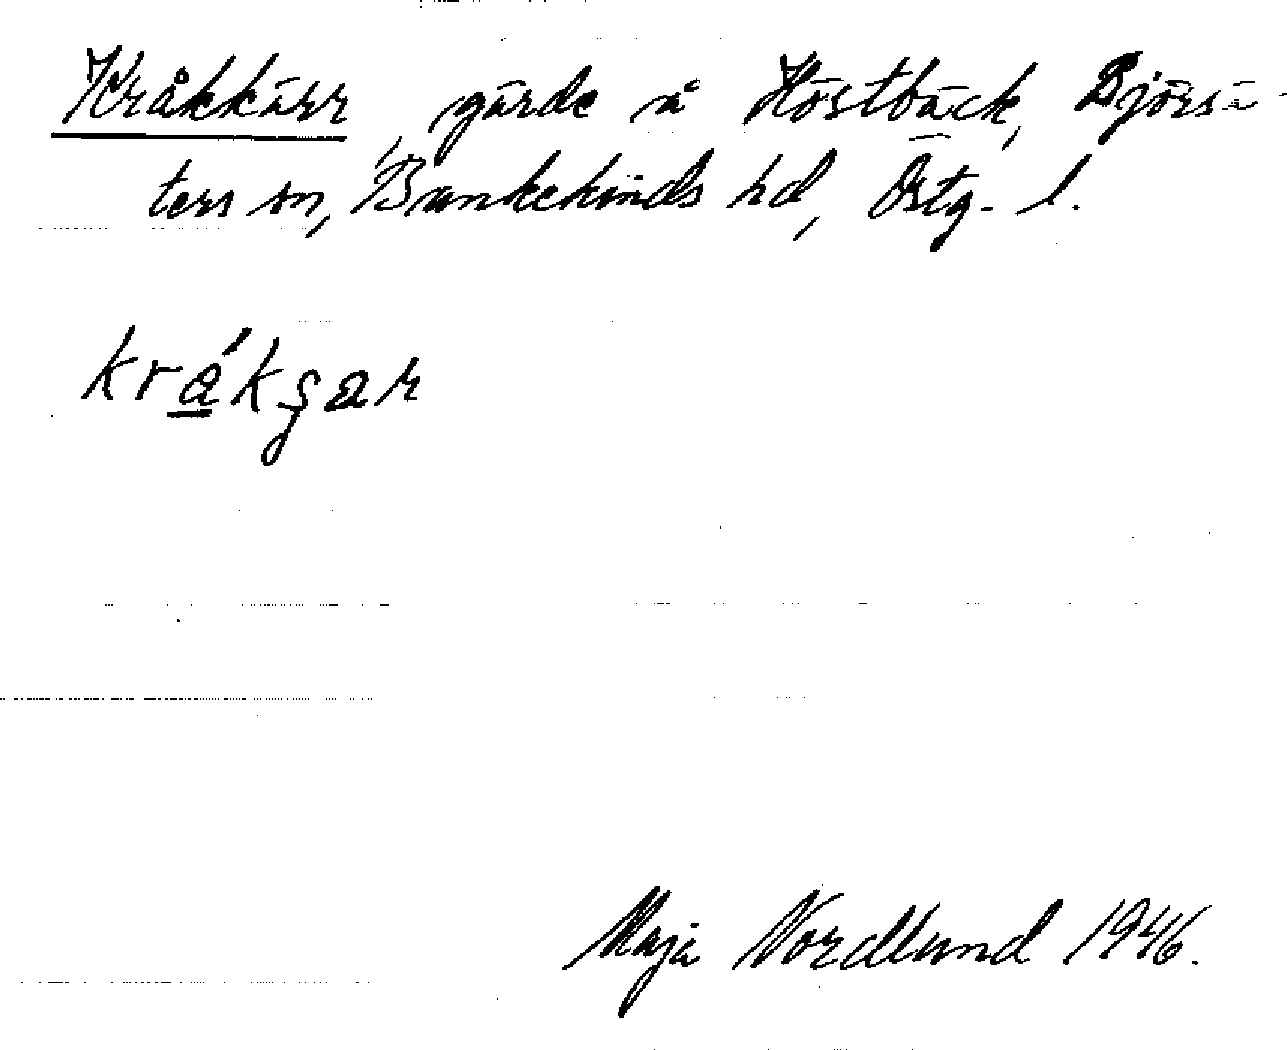 Kråkkärr, gärde å Höstbäck, Björsä-
ters sn, Bankekinds hd, Östg. l.
Maja Nordlund 1946.